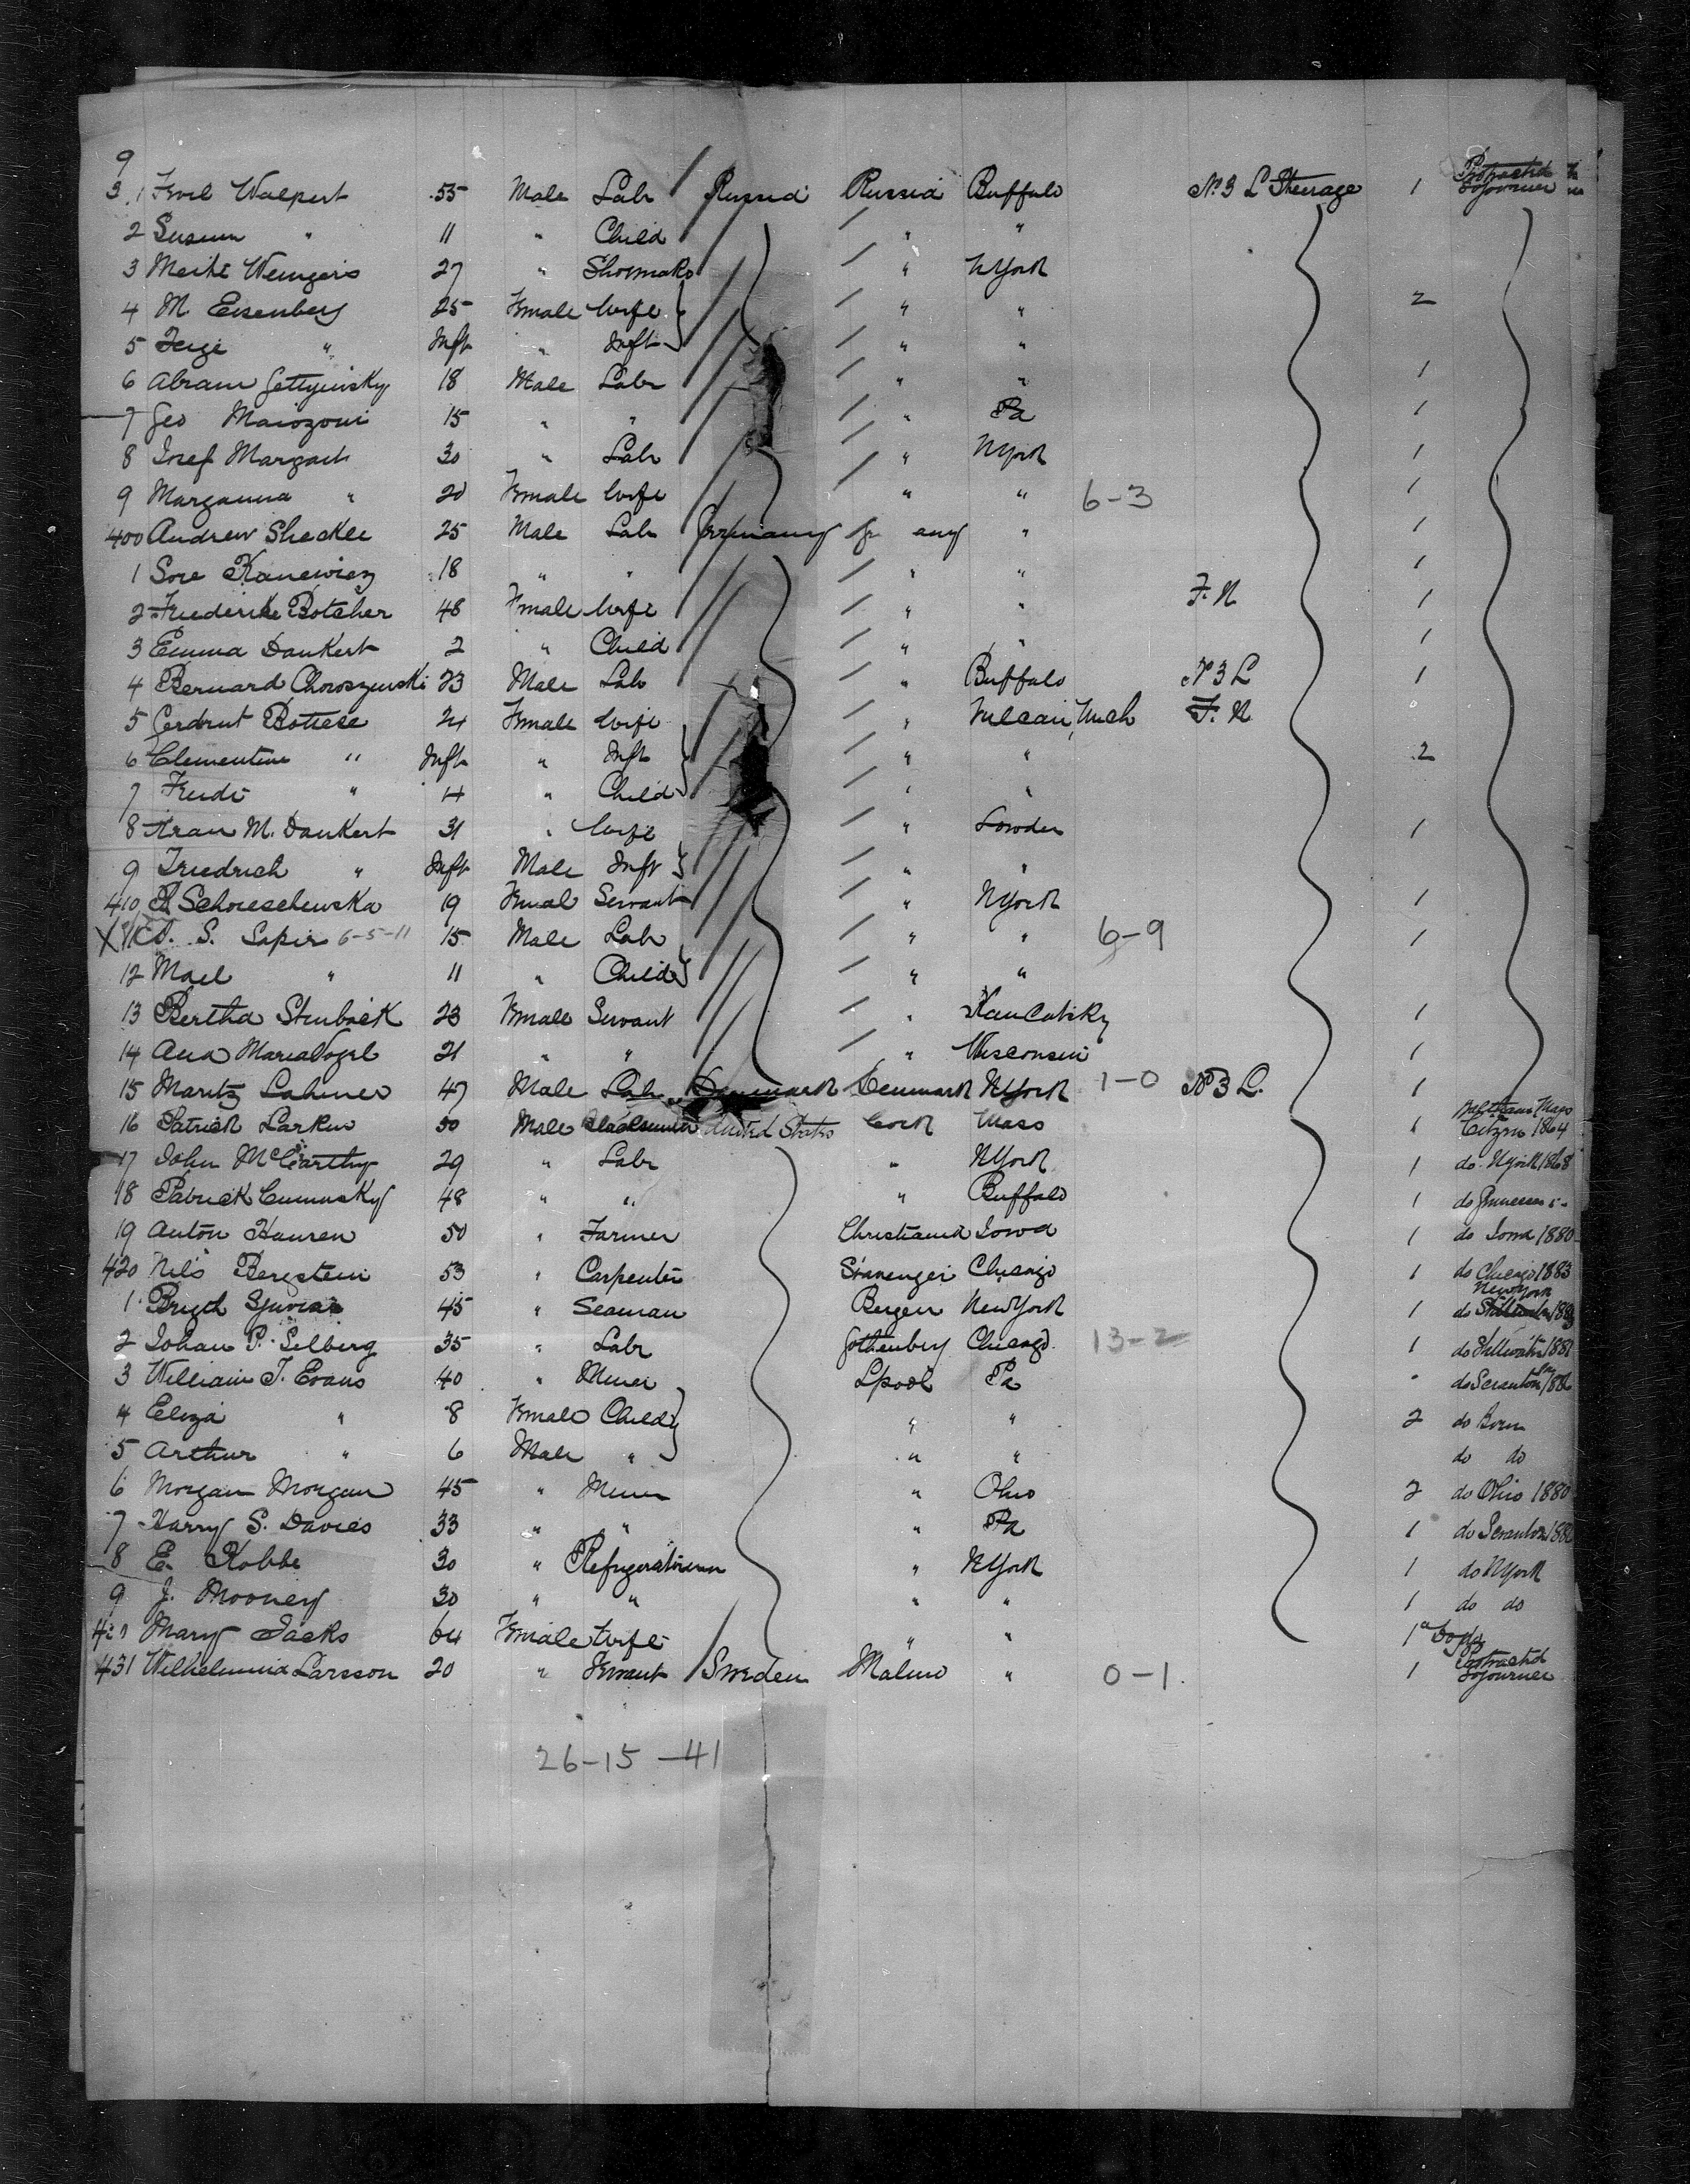 9
3 1 Frvil Walpert 55 Male Labr Russia Russia Buffalo No 3 L Steerage 1 Protracted Sojourner
2 " 11 " Child " "
3 Meihe Weingers 27 " Shoemakr " NYork
4 M. Eisenberg 25 Female Wife " " 2
5 Feige " Inft " Inft " "
6 Abram 18 Male Labr " " 1
7 Geo Maiozoni 15 " " " Pa 1
8 Josef Margait 30 " Labr " NYork 1
9 Marganna " 20 Female Wife " " 6-3 1
400 Andrew Sheckle 25 Male Labr Germany Ger any " 1
1 Sore Kanewicz 18 " " " " 1
2 Friederike Botcher 48 Female Wife " " F. N 1
3 Emma Dankert 2 " Child " " 1
4 Bernard Choroszewski 23 Male Labr " Buffalo No 3 L 1
5 Gerdrut Bottese 24 Female Wife " Vulcain, Mich F. N
6 Clementine " Inft " Inft " " 2
7 Freidi " 4 " Child " "
8 M. Dankert 31 " Wife " Lowden 1
9 Friedrich " Inft Male Inft " "
410 Schoreschewska 19 Femal Servant " NYork 1
X S. Sapir 6-5-11 15 Male Labr " " 6-9 1
12 Mael " 11 " Child " "
13 Bertha Stenback 23 Female Servant " 1
14 Ana Maria Vogel 21 " " " Wisconsin 1
15 Maritz Lahmer 47 Male Labr Denmark Denmark NYork 1-0 No 3 L. 1
16 Patrick Larkin 50 Male United States Cork Mass 1 Mass Citzen 1864
17 John McCarthy 29 " Labr " NYork 1 do NYork 1868
18 Patrick Cumusky 48 " " " Buffalo 1 do
19 Anton Hansen 50 " Farmer Christiania Iowa 1 do Iowa 1880
420 Nils Bergstein 53 " Carpenter Stavenger Chicago 1 do Chicago 1883
1 45 " Seaman Bergen New York 1 do New York
2 Johan P. Selberg 35 " Labr Gothenberg Chicago 13-2 1 do Stillwater 1882
3 William T. Evans 40 " Miner Lpool Pa do Scranton
4 Eliza " 8 Female Child " " 2 do Born
5 Arthur " 6 Male " " " do do
6 Morgan Morgan 45 " Miner " Ohio 2 do Ohio 1880
7 Harry S. Davies 33 " " " Pa 1 do Scranton 1882
8 E. Kobbe 30 " " NYork 1 do NYork
9 J. Mooney 30 " " " " 1 do do
Mary Jacks 64 Female Wife " " 1
431 Wilhelmina Larsson 20 " Servant Sweden Malmo " 0-1. 1 Protracted Sojourner
26-15-41